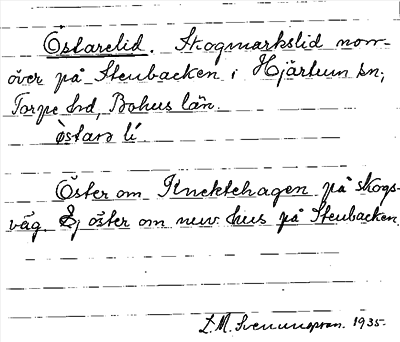 Östarelid. Skogmarkslid norr-
över på Stenbacken i Hjärtum sn,
Torpe hd, Bohus län.
östarə lí
Öster om Knektehagen på skogs-
väg. Ej öster om nuv. hus på Stenbacken.
L.M. Svenungsson. 1935.